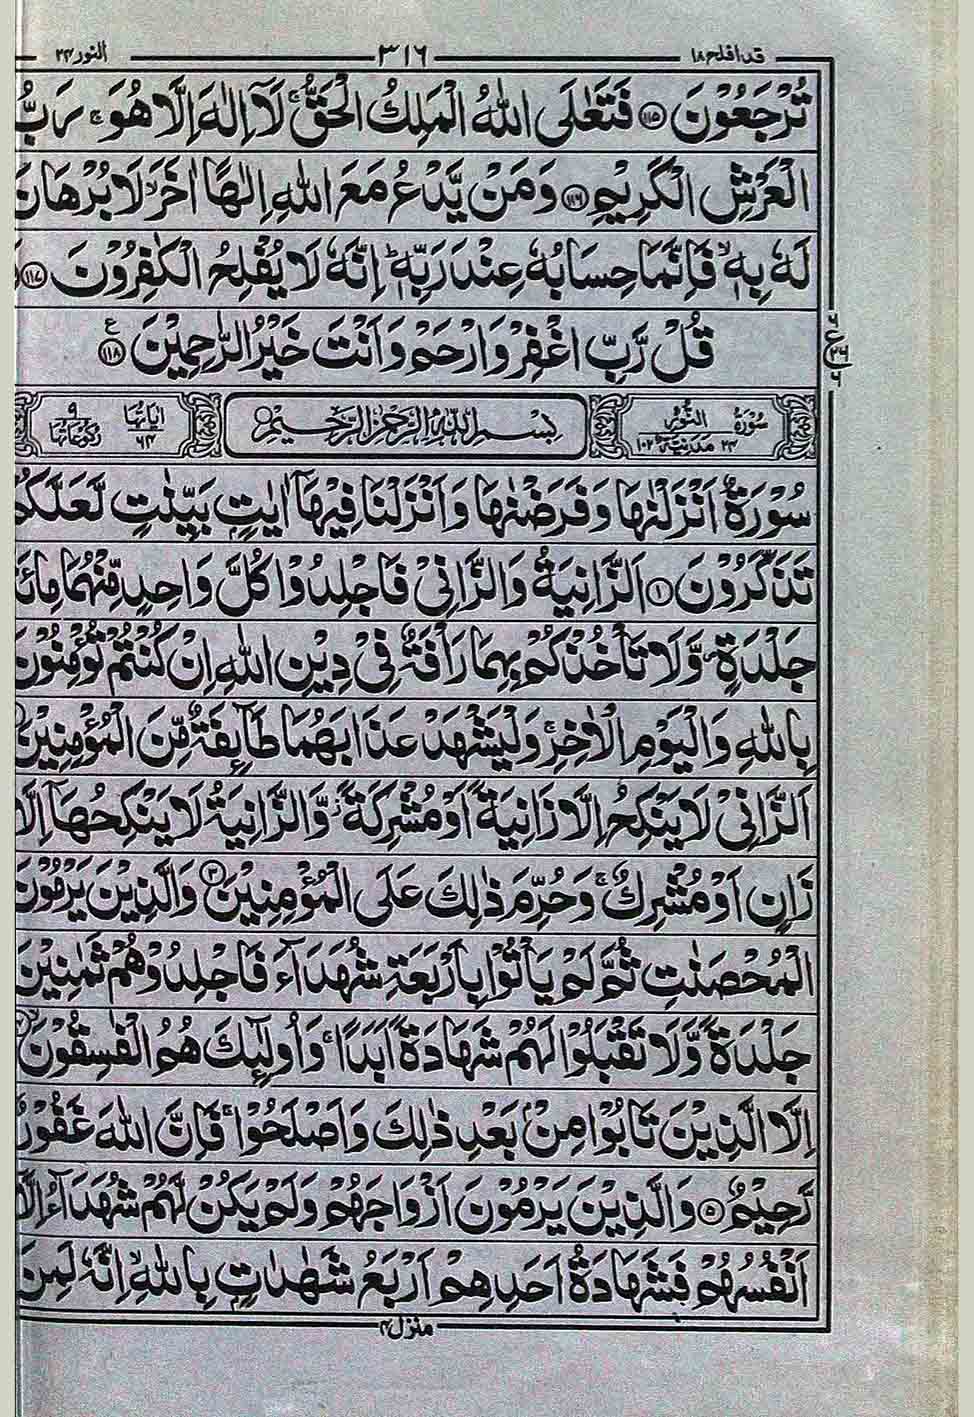 قد افلح ۱۸ ۳۱۶ النور ۲۴
تُرْجَعُوْنَ ﴿۱۱۵﴾ فَتَعٰلَى اللّٰهُ الْمَلِكُ الْحَقُّ ۚ لَاۤ اِلٰهَ اِلَّا هُوَ ۚ رَبُّ
الْعَرْشِ الْكَرِيْمِ ﴿۱۱۶﴾ وَمَنْ يَّدْعُ مَعَ اللّٰهِ اِلٰهًا اٰخَرَ ۙ لَا بُرْهَانَ
لَهٗ بِهٖ ۙ فَاِنَّمَا حِسَابُهٗ عِنْدَ رَبِّهٖ ؕ اِنَّهٗ لَا يُفْلِحُ الْكٰفِرُوْنَ ﴿۱۱۷﴾
قُلْ رَّبِّ اغْفِرْ وَارْحَمْ وَاَنْتَ خَيْرُ الرّٰحِمِيْنَ ﴿۱۱۸﴾ ع
سُوْرَةُ النُّوْرِ ۲۴ مَدَنِيَّةٌ ۱۰۲ بِسْمِ اللّٰهِ الرَّحْمٰنِ الرَّحِيْمِ اٰيَاتُهَا ۶۴ رُكُوْعَاتُهَا ۹
سُوْرَةٌ اَنْزَلْنٰهَا وَفَرَضْنٰهَا وَاَنْزَلْنَا فِيْهَاۤ اٰيٰتٍۭ بَيِّنٰتٍ لَّعَلَّكُمْ
تَذَكَّرُوْنَ ﴿۱﴾ اَلزَّانِيَةُ وَالزَّانِيْ فَاجْلِدُوْا كُلَّ وَاحِدٍ مِّنْهُمَا مِائَةَ
جَلْدَةٍ ۪ وَّلَا تَاْخُذْكُمْ بِهِمَا رَاْفَةٌ فِيْ دِيْنِ اللّٰهِ اِنْ كُنْتُمْ تُؤْمِنُوْنَ
بِاللّٰهِ وَالْيَوْمِ الْاٰخِرِ ۚ وَلْيَشْهَدْ عَذَابَهُمَا طَآئِفَةٌ مِّنَ الْمُؤْمِنِيْنَ
اَلزَّانِيْ لَا يَنْكِحُ اِلَّا زَانِيَةً اَوْ مُشْرِكَةً ؗ وَّالزَّانِيَةُ لَا يَنْكِحُهَاۤ اِلَّا
زَانٍ اَوْ مُشْرِكٌ ۚ وَحُرِّمَ ذٰلِكَ عَلَى الْمُؤْمِنِيْنَ ﴿۳﴾ وَالَّذِيْنَ يَرْمُوْنَ
الْمُحْصَنٰتِ ثُمَّ لَمْ يَاْتُوْا بِاَرْبَعَةِ شُهَدَآءَ فَاجْلِدُوْهُمْ ثَمٰنِيْنَ
جَلْدَةً وَّلَا تَقْبَلُوْا لَهُمْ شَهَادَةً اَبَدًا ۚ وَاُولٰٓئِكَ هُمُ الْفٰسِقُوْنَ
اِلَّا الَّذِيْنَ تَابُوْا مِنْۢ بَعْدِ ذٰلِكَ وَاَصْلَحُوْا ۚ فَاِنَّ اللّٰهَ غَفُوْرٌ
رَّحِيْمٌ ﴿۵﴾ وَالَّذِيْنَ يَرْمُوْنَ اَزْوَاجَهُمْ وَلَمْ يَكُنْ لَّهُمْ شُهَدَآءُ اِلَّاۤ
اَنْفُسُهُمْ فَشَهَادَةُ اَحَدِهِمْ اَرْبَعُ شَهٰدٰتٍۭ بِاللّٰهِ ۙ اِنَّهٗ لَمِنَ
منزل ۴